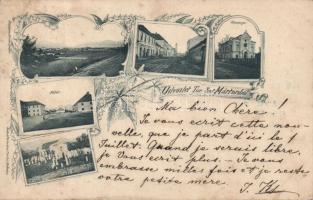 Üdvözlet Túr Szt Mártonból
Ma bien Chère!
Je vous ecrit cette nou-
velle, que je part d'ici le 1
Juillet. Quand je serais libre,
je Vous ecrirt plus. - Je vous
embrasse milles fois et je reste
votre petite mère